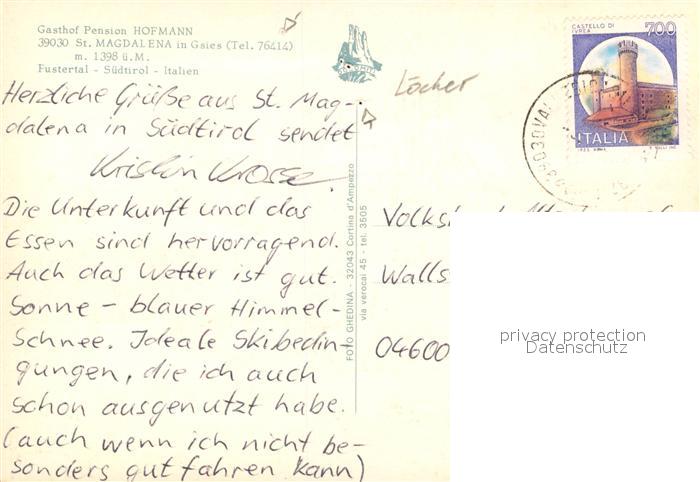 Gasthof Pension HOFMANN
39030 St. MAGDALENA in Gsies (Tel. 76414)
m. 1398 ü.M.
Fustertal - Südtirol - Italien
Herzliche Grüße aus St. Mag-
dalena in Südtirol sendet
Kristin Krosse.
Die Unterkunft und das
Essen sind hervorragend.
Auch das Wetter ist gut.
Sonne - blauer Himmel -
Schnee. Ideale Skibedin-
gungen, die ich auch
schon ausgenutzt habe.
(auch wenn ich nicht be-
sonders gut fahren kann)
Löcher
FOTO GHEDINA - 32043 Cortina d'Ampezzo
via verocai 45 - tel. 3505
CASTELLO DI
IVREA
700
ITALIA
Walls
04600
privacy protection
Datenschutz